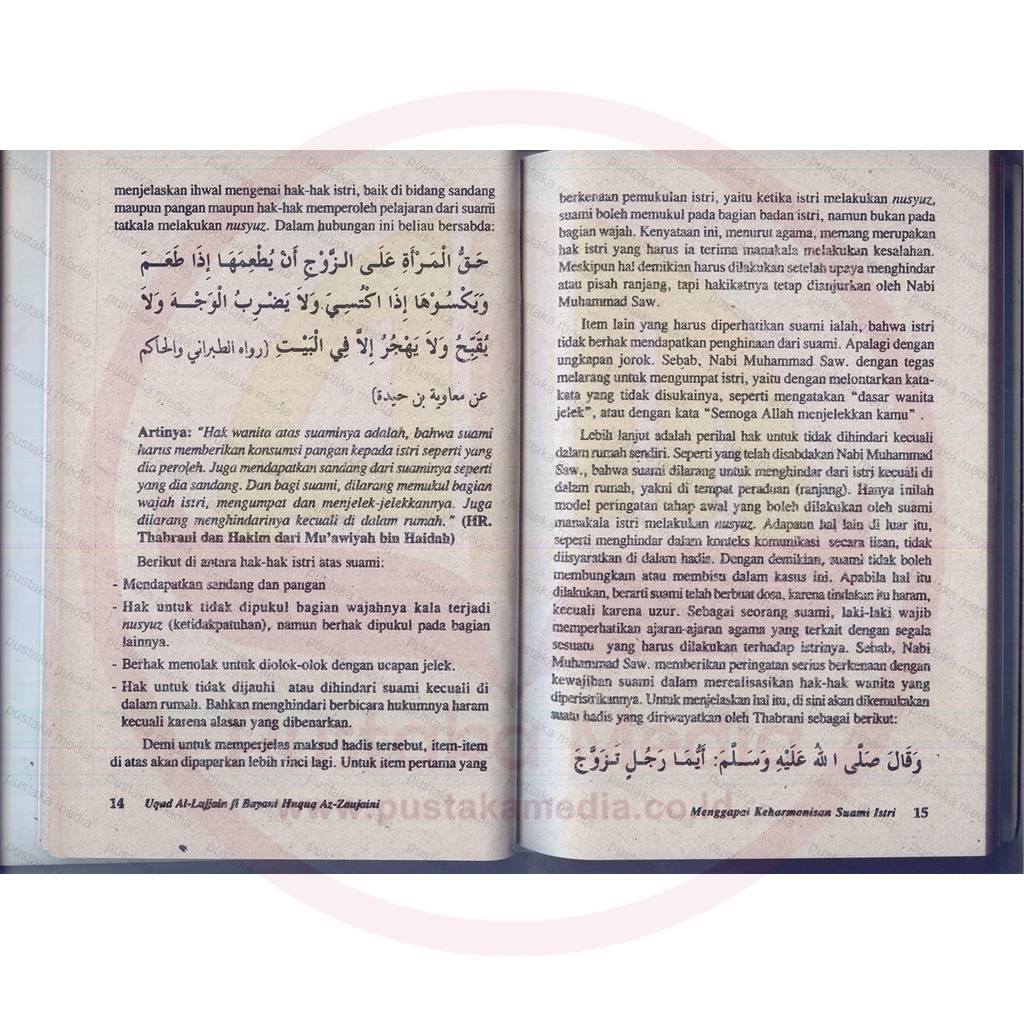 menjelaskan ihwal mengenai hak-hak istri, baik di bidang sandang
maupun pangan maupun hak-hak memperoleh pelajaran dari suami
tatkala melakukan nusyuz. Dalam hubungan ini beliau bersabda:
حَقُّ الْمَرْأَةِ عَلَى الزَّوْجِ أَنْ يُطْعِمَهَا إِذَا طَعَمَ
وَيَكْسُوْهَا إِذَا اكْتُسِيَ وَلاَ يَضْرِبُ الْوَجْهَ وَلاَ
يُقَبِّحُ وَلاَ يَهْجُرُ إِلاَّ فِي الْبَيْتِ (رواه الطبراني والحاكم
عن معاوية بن حيدة)
Artinya: "Hak wanita atas suaminya adalah, bahwa suami
harus memberikan konsumsi pangan kepada istri seperti yang
dia peroleh. Juga mendapatkan sandang dari suaminya seperti
yang dia sandang. Dan bagi suami, dilarang memukul bagian
wajah istri, mengumpat dan menjelek-jelekkannya. Juga
dilarang menghindarinya kecuali di dalam rumah." (HR.
Thabrani dan Hakim dari Mu'awiyah bin Haidah)
Berikut di antara hak-hak istri atas suami:
- Mendapatkan sandang dan pangan
- Hak untuk tidak dipukul bagian wajahnya kala terjadi
nusyuz (ketidakpatuhan), namun berhak dipukul pada bagian
lainnya.
- Berhak menolak untuk diolok-olok dengan ucapan jelek.
- Hak untuk tidak dijauhi atau dihindari suami kecuali di
dalam rumah. Bahkan menghindari berbicara hukumnya haram
kecuali karena alasan yang dibenarkan.
Demi untuk memperjelas maksud hadis tersebut, item-item
di atas akan dipaparkan lebih rinci lagi. Untuk item pertama yang
14 Uqud Al-Lujjain fi Bayani Huquq Az-Zaujaini
berkenaan pemukulan istri, yaitu ketika istri melakukan nusyuz,
suami boleh memukul pada bagian badan istri, namun bukan pada
bagian wajah. Kenyataan ini, menurut agama, memang merupakan
hak istri yang harus ia terima manakala melakukan kesalahan.
Meskipun hal demikian harus dilakukan setelah upaya menghindar
atau pisah ranjang, tapi hakikatnya tetap dianjurkan oleh Nabi
Muhammad Saw.
Item lain yang harus diperhatikan suami ialah, bahwa istri
tidak berhak mendapatkan penghinaan dari suami. Apalagi dengan
ungkapan jorok. Sebab, Nabi Muhammad Saw. dengan tegas
melarang untuk mengumpat istri, yaitu dengan melontarkan kata-
kata yang tidak disukainya, seperti mengatakan "dasar wanita
jelek", atau dengan kata "Semoga Allah menjelekkan kamu" .
Lebih lanjut adalah perihal hak untuk tidak dihindari kecuali
dalam rumah sendiri. Seperti yang telah disabdakan Nabi Muhammad
Saw., bahwa suami dilarang untuk menghindar dari istri kecuali di
dalam rumah, yakni di tempat peraduan (ranjang). Hanya inilah
model peringatan tahap awal yang boleh dilakukan oleh suami
manakala istri melakukan nusyuz. Adapaun hal lain di luar itu,
seperti menghindar dalam konteks komunikasi secara lisan, tidak
diisyaratkan di dalam hadis. Dengan demikian, suami tidak boleh
membungkam atau membisu dalam kasus ini. Apabila hal itu
dilakukan, berarti suami telah berbuat dosa, karena tindakan itu haram,
kecuali karena uzur. Sebagai seorang suami, laki-laki wajib
memperhatikan ajaran-ajaran agama yang terkait dengan segala
sesuatu yang harus dilakukan terhadap istrinya. Sebab, Nabi
Muhammad Saw. memberikan peringatan serius berkenaan dengan
kewajiban suami dalam merealisasikan hak-hak wanita yang
diperistrikannya. Untuk menjelaskan hal itu, di sini akan dikemukakan
suatu hadis yang diriwayatkan oleh Thabrani sebagai berikut:
وَقَالَ صَلَّى اللهُ عَلَيْهِ وَسَلَّمَ: أَيُّمَا رَجُلٍ تَزَوَّجَ
Menggapai Keharmonisan Suami Istri 15
www.pustakamedia.co.id
pustaka media